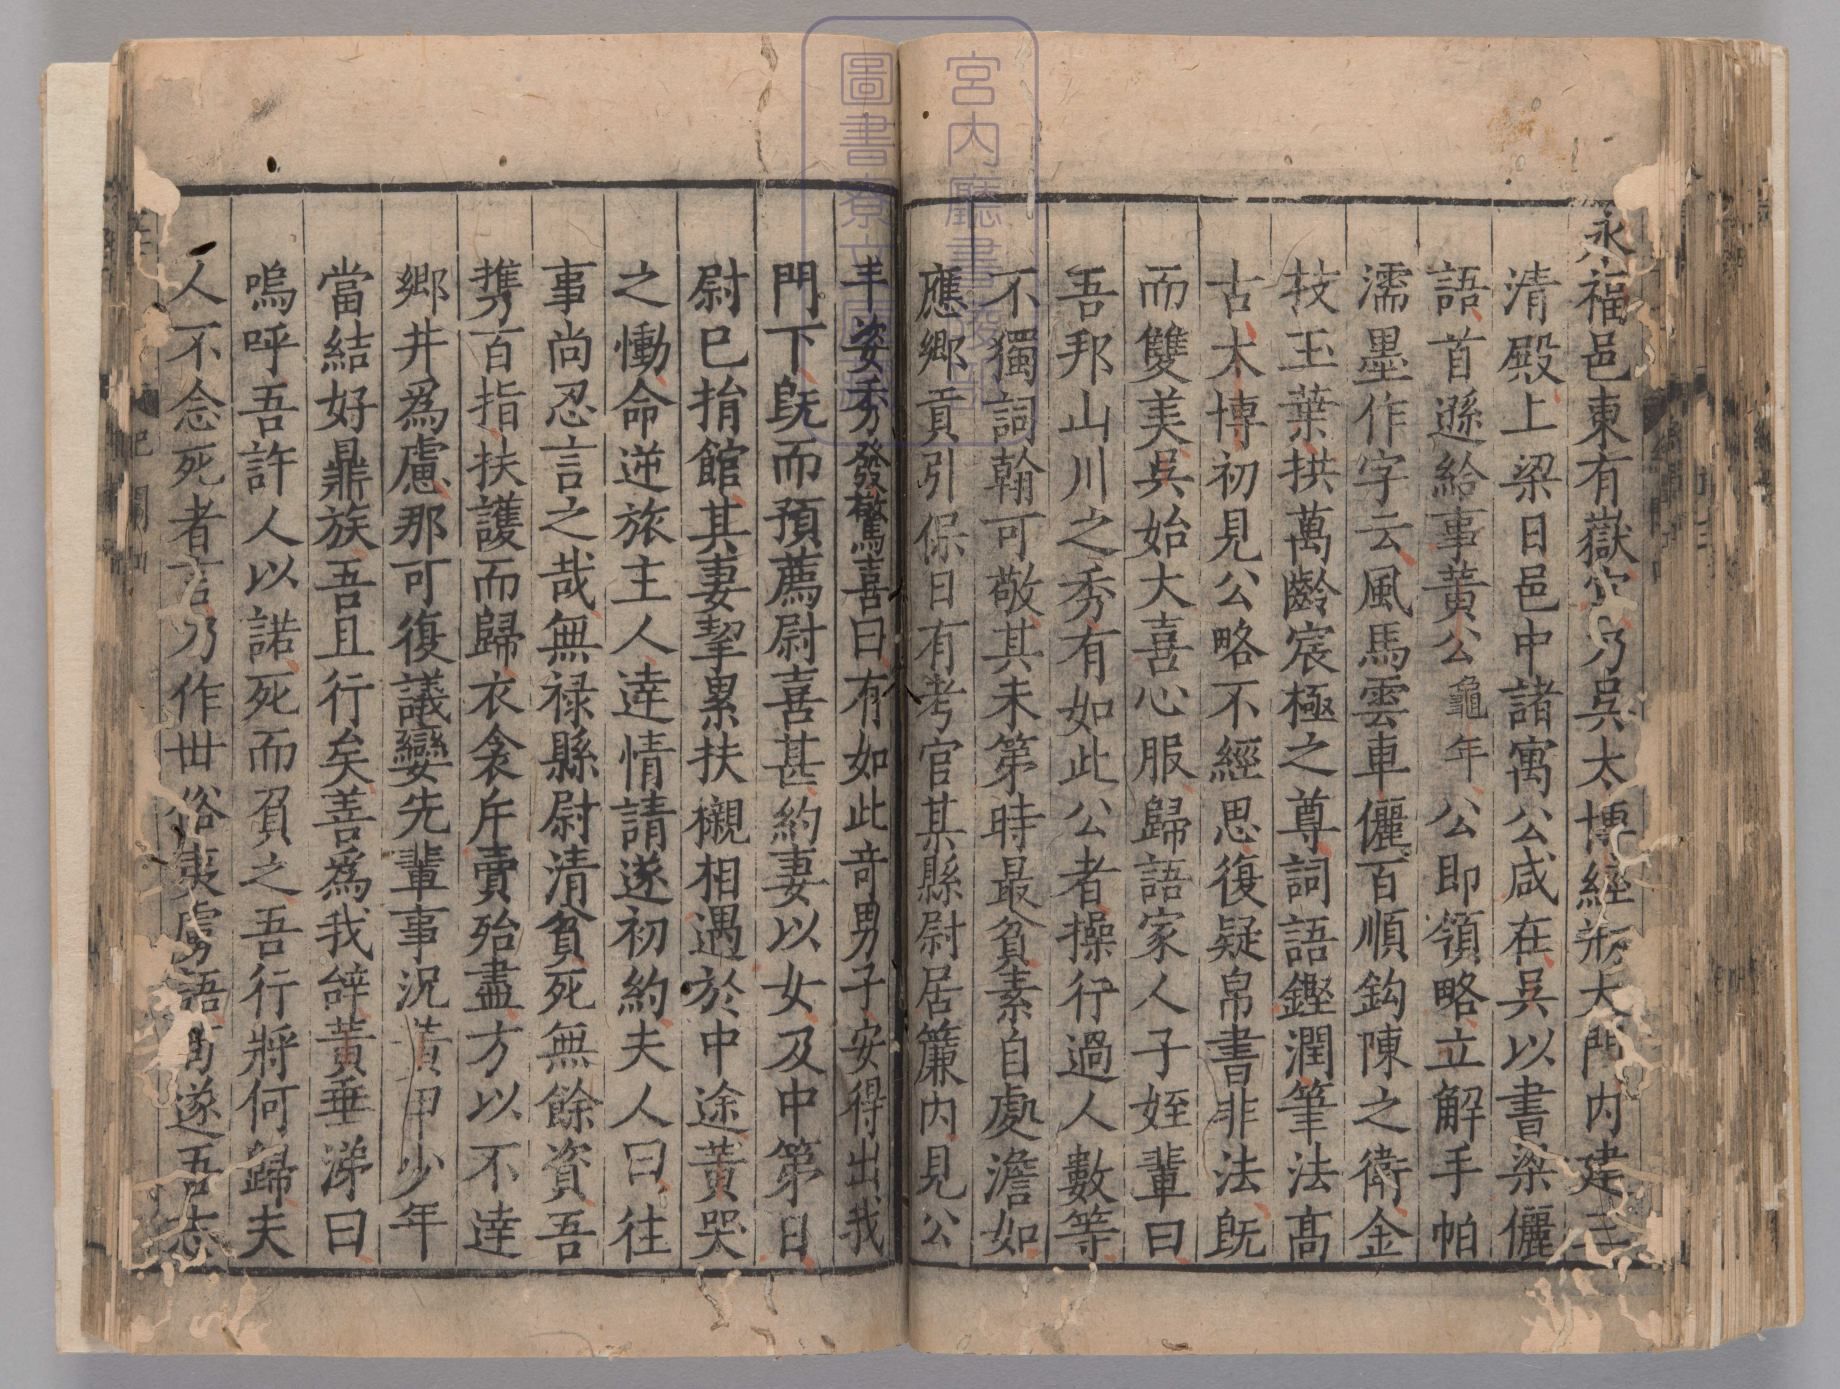 永福邑東有嶽宮乃吳太博經始大門內建三
清殿上梁日邑中諸寓公咸在吳以書梁儷
語首遜給事黃公龜年公即領略立解手帕
濡墨作字云風馬雲車儷百順鈎陳之衛金
枝玉葉拱萬齡宸極之尊詞語鏗潤筆法高
古太博初見公略不經思復疑帛書非法既
而雙美吳始大喜心服歸語家人子姪輩曰
吾邦山川之秀有如此公者操行過人數等
不獨詞翰可敬其未第時最貧素自處澹如
應鄉貢引保日有考官某縣尉居簾內見公
丰姿秀發驚喜曰有如此奇男子安得出我
門下既而預薦尉喜甚約妻以女及中第日
尉巳捐館其妻挈累扶櫬相遇於中途黃哭
之慟命逆旅主人達情請遂初約夫人曰往
事尚忍言之哉無禄縣尉清貧死無餘資吾
携百指扶護而歸衣衾斥賣殆盡方以不達
鄉井爲慮那可復議孌先輩事況黃甲少年
當結好鼎族吾且行矣善爲我辝黃垂涕曰
嗚呼吾許人以諾死而負之吾行將何歸夫
人不念死者言乃作世俗夷虜語耶遂吾志
宮內廳書陵部
圖書寮文庫